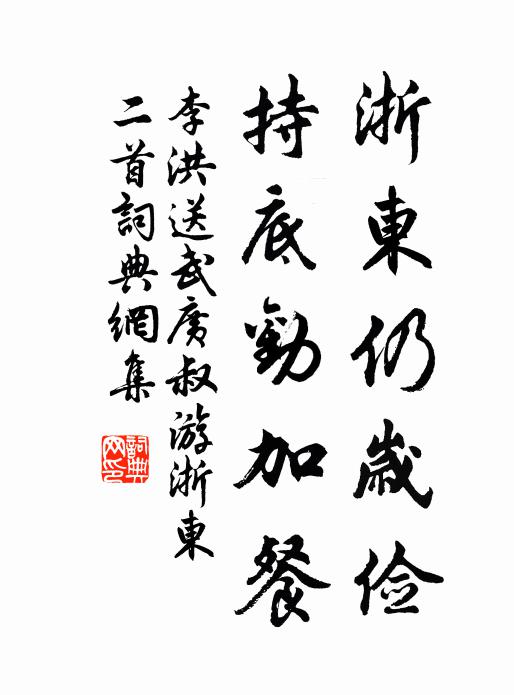 浙東仍歲儉
持底勸加餐
李洪送武廣叔游浙東
二首詞典網集
詞典網印